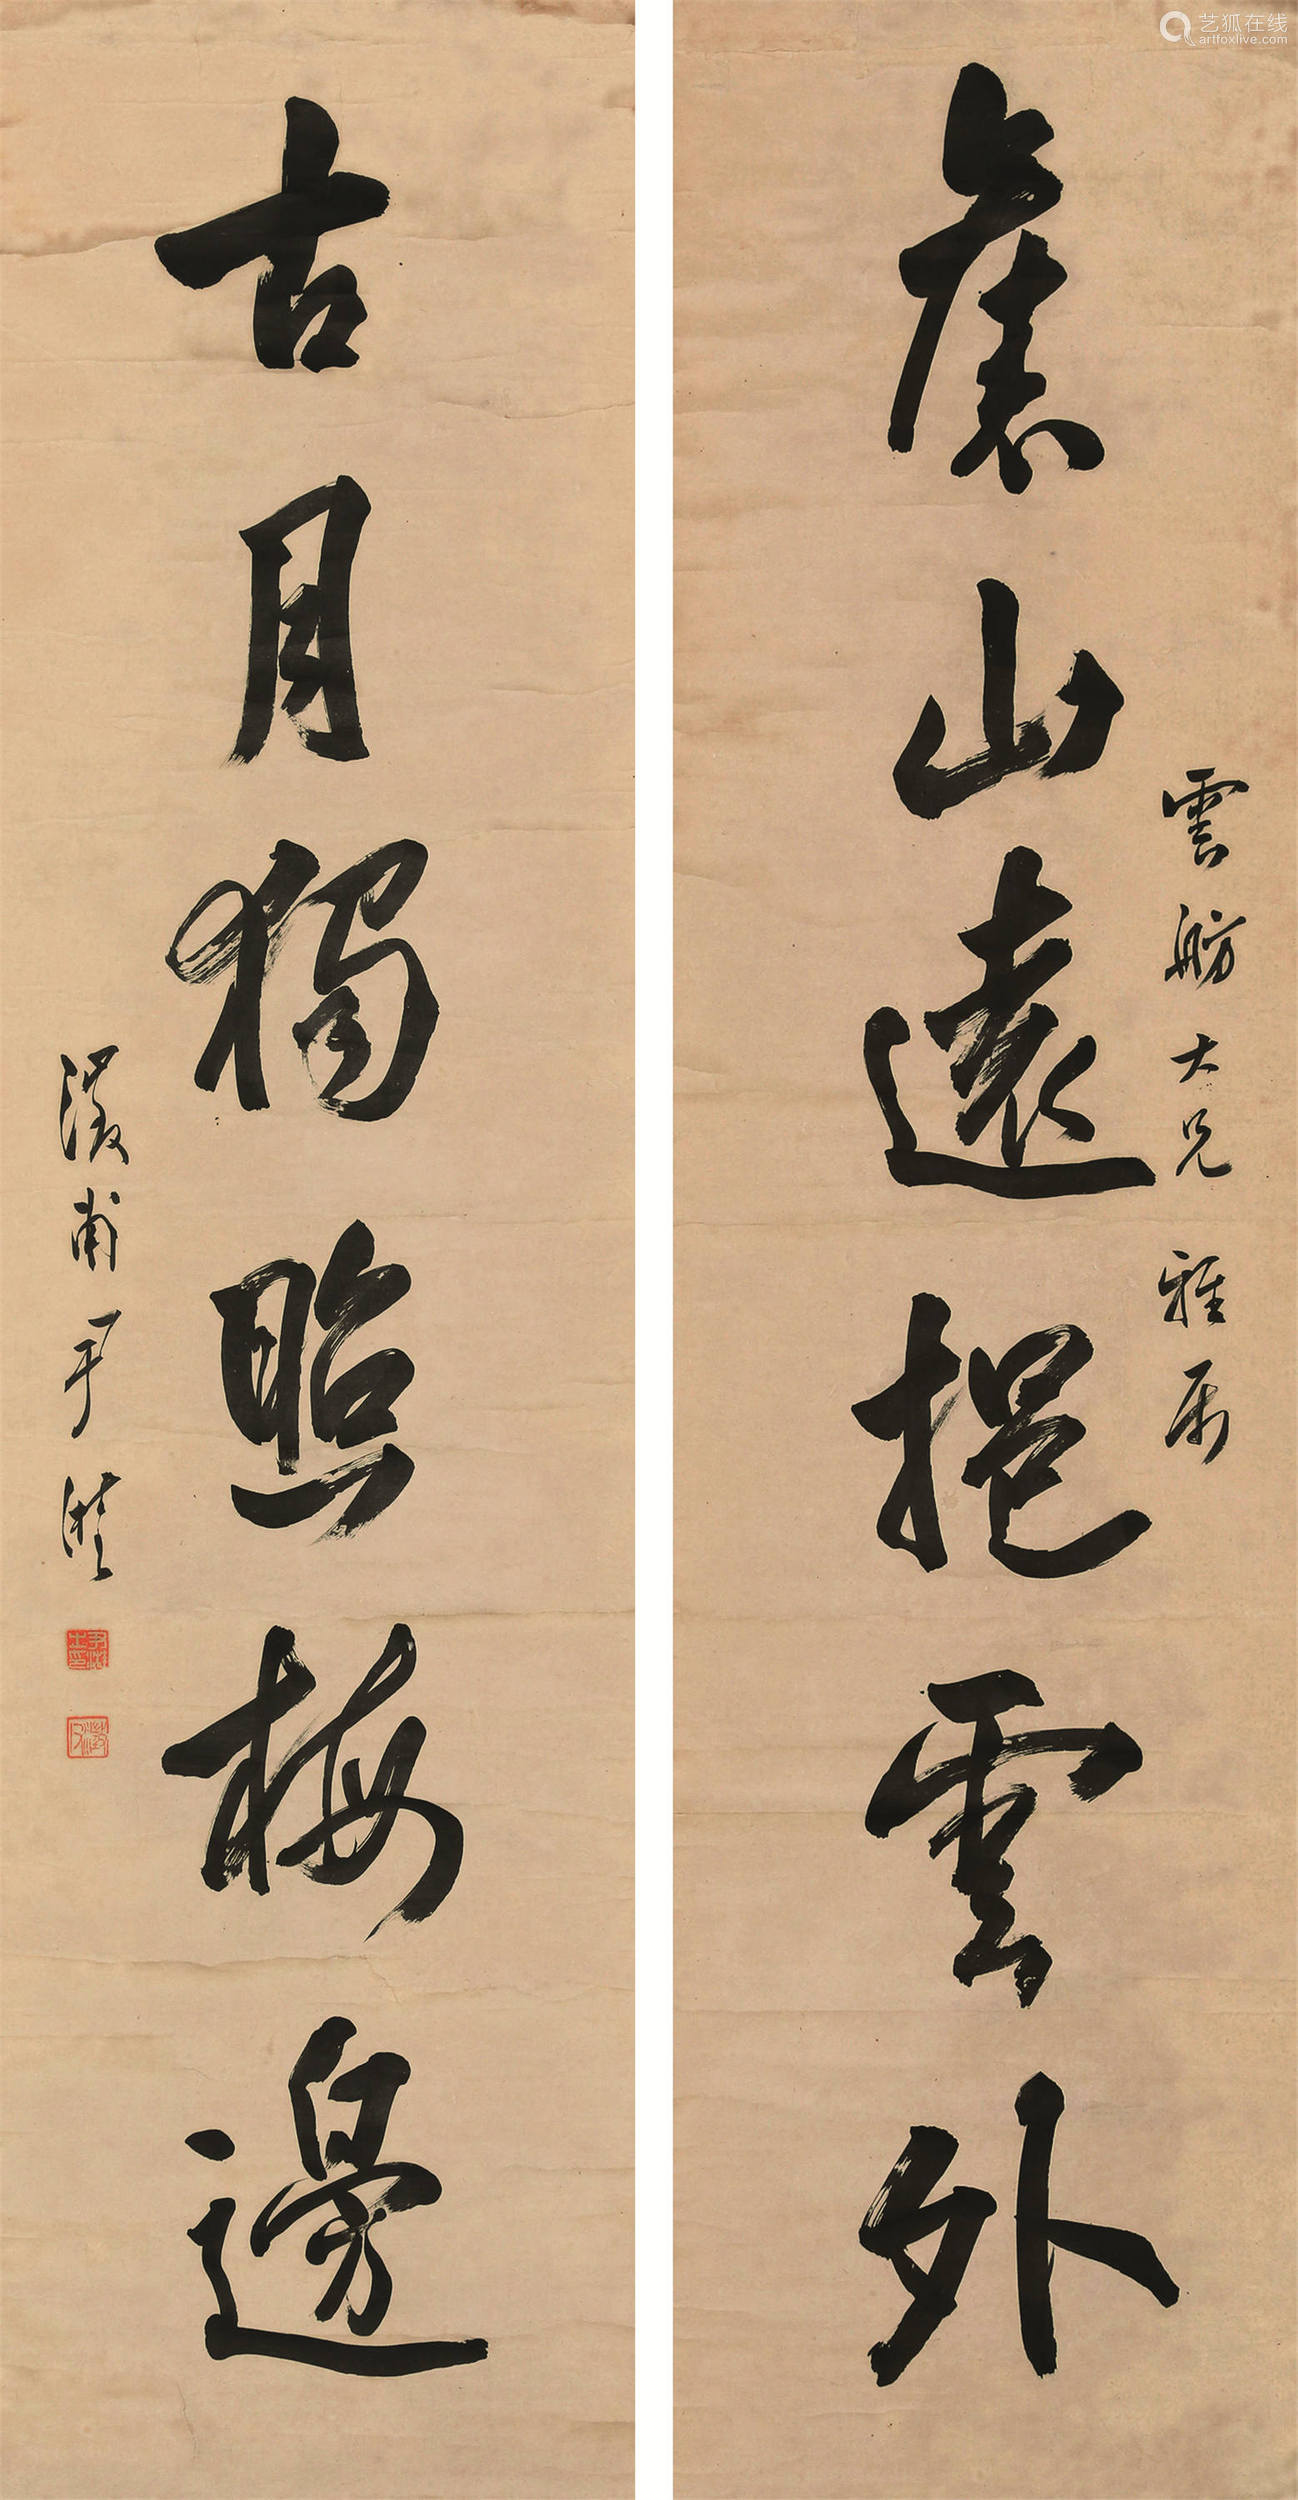 山遠挹雲外
雲舫大兄雅属
古月獨照梅邊
澂甫
艺狐在线
artfoxlive.com